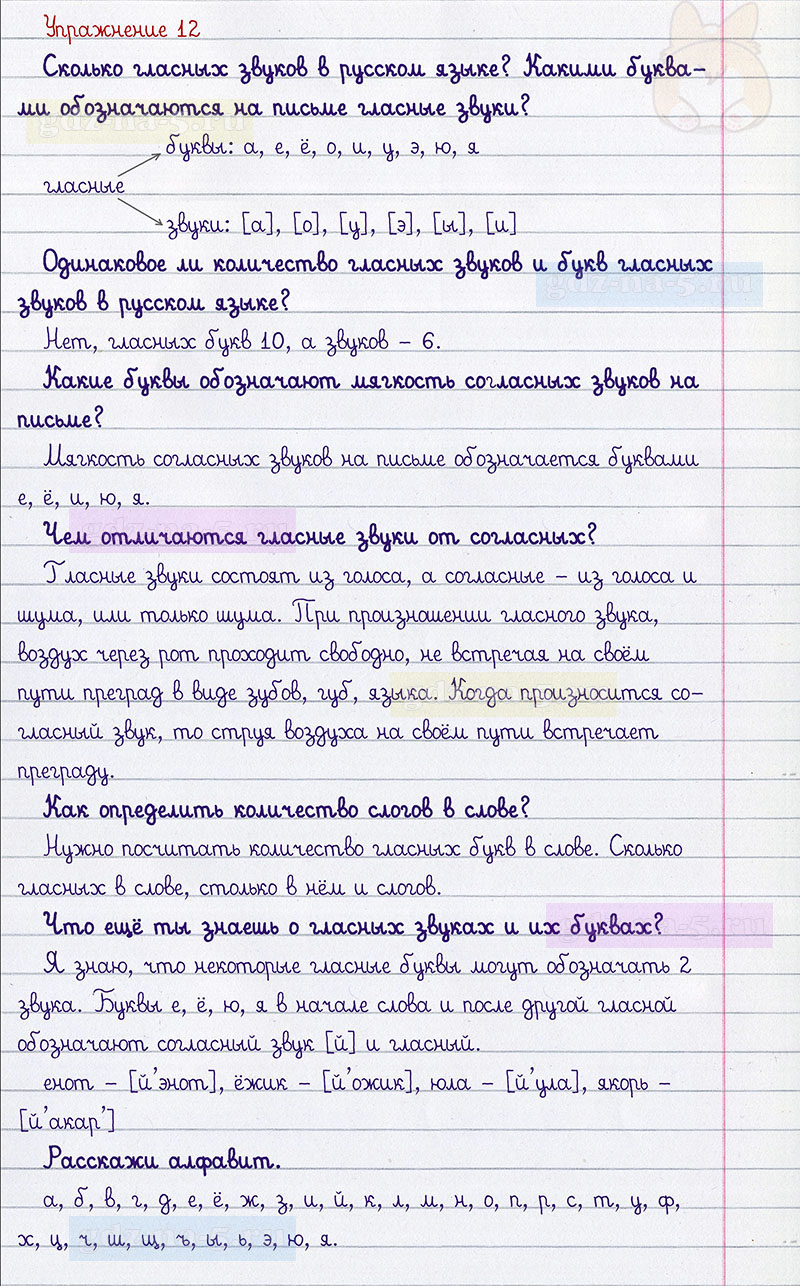 Упражнение 12
Сколько гласных звуков в русском языке? Какими буква-
ми обозначаются на письме гласные звуки?
буквы: а, е, ё, о, и, у, э, ю, я
гласные
звуки: [а], [о], [у], [э], [ы], [и]
Одинаковое ли количество гласных звуков и букв гласных
звуков в русском языке?
Нет, гласных букв 10, а звуков – 6.
Какие буквы обозначают мягкость согласных звуков на
письме?
Мягкость согласных звуков на письме обозначается буквами
е, ё, и, ю, я.
Чем отличаются гласные звуки от согласных?
Гласные звуки состоят из голоса, а согласные – из голоса и
шума, или только шума. При произношении гласного звука,
воздух через рот проходит свободно, не встречая на своём
пути преград в виде зубов, губ, языка. Когда произносится со-
гласный звук, то струя воздуха на своём пути встречает
преграду.
Как определить количество слогов в слове?
Нужно посчитать количество гласных букв в слове. Сколько
гласных в слове, столько в нём и слогов.
Что ещё ты знаешь о гласных звуках и их буквах?
Я знаю, что некоторые гласные буквы могут обозначать 2
звука. Буквы е, ё, ю, я в начале слова и после другой гласной
обозначают согласный звук [й] и гласный.
енот – [й’энот], ёжик – [й’ожик], юла – [й’ула], якорь –
[й’акар’]
Расскажи алфавит.
а, б, в, г, д, е, ё, ж, з, и, й, к, л, м, н, о, п, р, с, т, у, ф,
х, ц, ч, ш, щ, ъ, ы, ь, э, ю, я.
gdz-na-5.ru
gdz-na-5.ru
gdz-na-5.ru
gdz-na-5.ru
gdz-na-5.ru
gdz-na-5.ru